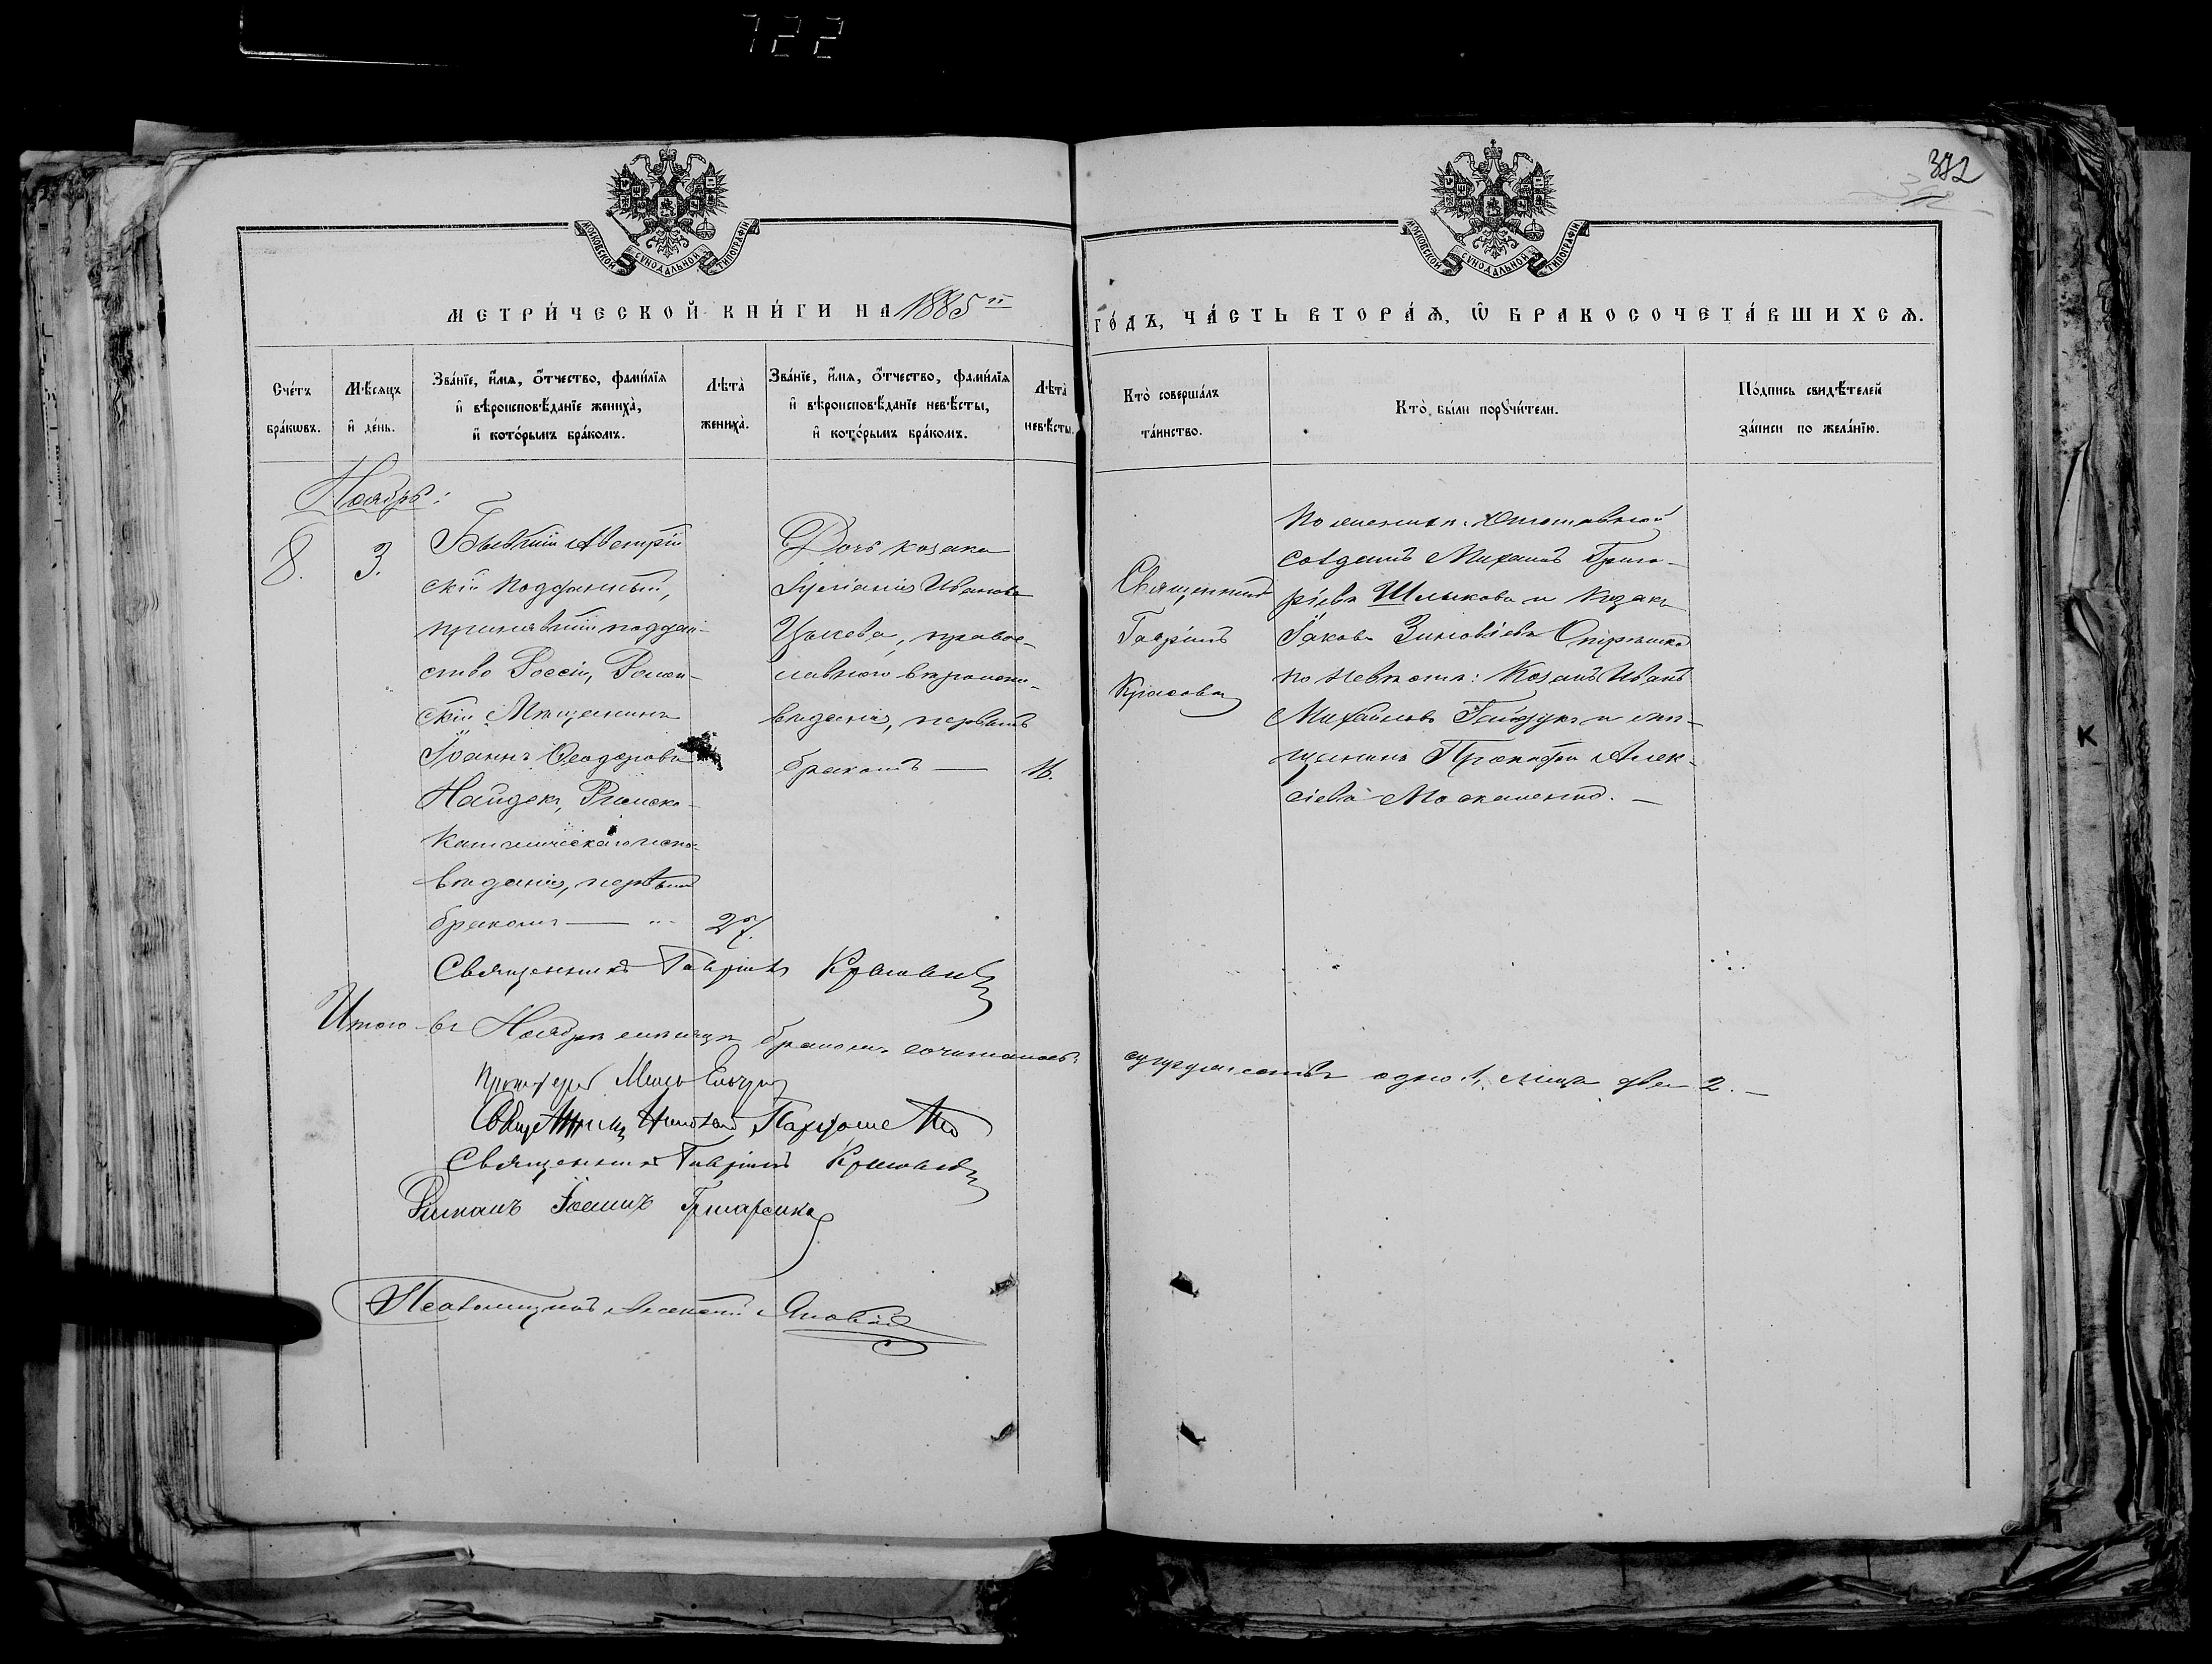 722
382
МОСКОВСКОЙ СѴНОДАЛЬНОЙ ТИПОГРАФІИ
МОСКОВСКОЙ СѴНОДАЛЬНОЙ ТИПОГРАФІИ
МЕТРИ́ЧЕСКОЙ КНИ́ГИ НА 1885й
ГО́ДЪ, ЧА́СТЬ ВТОРА́Ѧ, Ѡ БРАКОСОЧЕТА́ВШИХСѦ.
Сче́тъ бра́кѡвъ.
Мѣ́сяцъ и҆ де́нь.
Зва́нїе, и҆́мя, ѻ҆́тчество, фами́лїя
и҆ вѣроисповѣ́данїе жениха̀,
и҆ кото́рымъ бра́комъ.
Лѣта̀
жениха̀.
Зва́нїе, и҆́мя, ѻ҆́тчество, фами́лїя
и҆ вѣроисповѣ́данїе невѣ́сты,
и҆ кото́рымъ бра́комъ.
Лѣта̀
невѣ́сты.
Кто̀ соверша́лъ
та́инство.
Кто̀ бы́ли порꙋчи́тели.
По́дпись свидѣ́телей
за́писи по жела́нїю.
Ноябрь:
8.
3.
Бывшій Австрій
скій подданный,
принявшій поддан-
ство Россіи, Ромен-
скій Мѣщанинъ
Іоаннъ Ѳеодоровъ
Найдекъ, Римско-
католическаго испо-
вѣданія, первымъ
бракомъ — "
27.
Дочь козака
Іуліанія Иванова
правос-
лавнаго вѣроиспо-
вѣданія, первымъ
бракомъ —
16.
Священникъ
Гавріилъ
По женихѣ: отставной
солдатъ Михаилъ Григо-
ріевъ Шлыковъ и козакъ
Іаковъ Зиновіевъ
по невѣстѣ: Козакъ Иванъ
Михайловъ Гайдукъ и мѣ-
щанинъ Прокофій Алек-
сіевъ Москаленко. —
Священникъ Гавріилъ
Итого въ Ноябрѣ мѣсяцѣ бракомъ сочеталось:
супружествъ одно 1, лица два 2. —
Священникъ Пархоменко
Священникъ Гавріилъ
Іоаннъ
Псаломщикъ